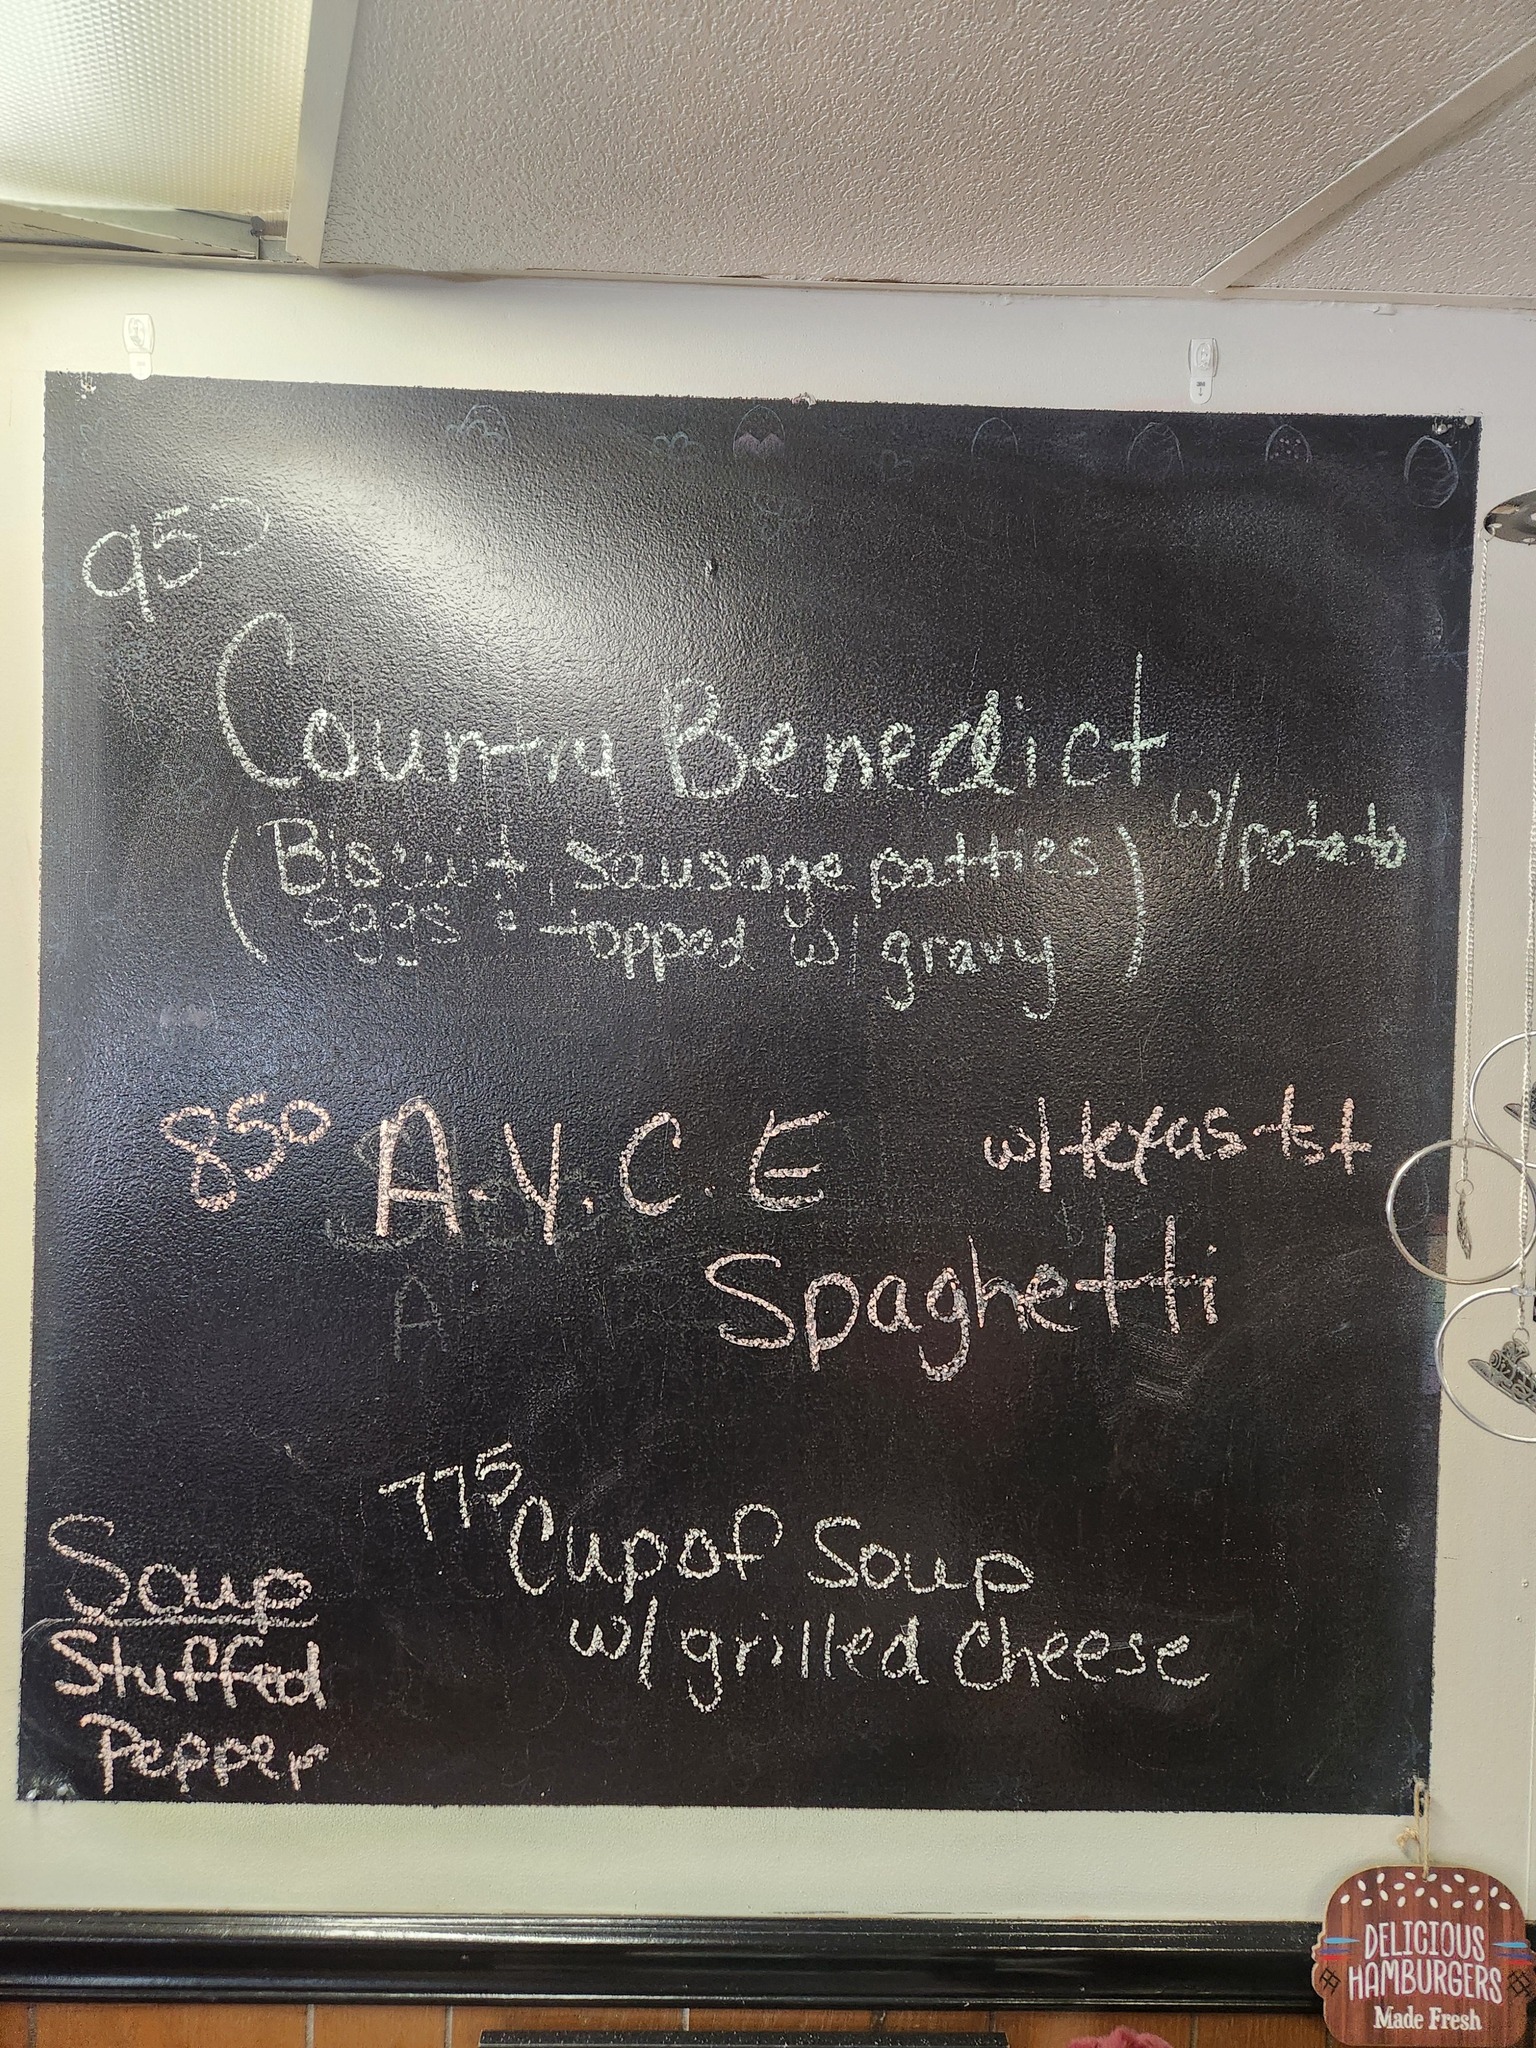 950
Country Benedict
(Biscuit, sausage patties) w/potato
eggs & topped w/gravy
850 A.Y.C.E w/texas tst
Spaghetti
775 Cup of Soup
w/grilled cheese
Soup
Stuffed
Pepper
DELICIOUS
HAMBURGERS
Made Fresh